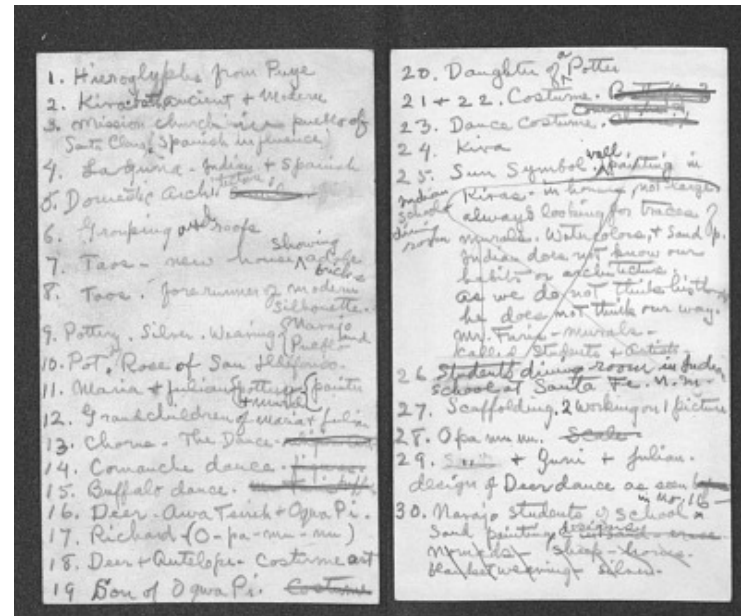 1. Hieroglyphs from Puye
2. Kiva ancient + Modern
3. Mission church in pueblo of
Santa Clara, Spanish influence
4. Laguna. Indian + Spanish
5. Domestic Architecture.
6. Grouping and roofs
7. Taos - new house showing adobe bricks
8. Taos. forerunner of modern
silhouette.
9. Pottery. Silver. Weaving { Navajo and
Pueblo
10. Pot, Rose of San Ildefonso.
11. Maria + Julian { pottery { painter
+ mural
12. Grandchildren of Maria + Julian
13. Chorus. The Dance.
14. Comanche dance.
15. Buffalo dance.
16. Deer. Awa Tsireh + Oqwa Pi.
17. Richard (O-pa-mu-nu)
18. Deer + Antelope. Costume art
19 Son of Oqwa Pi. Costume
20. Daughter of a Potter
21 + 22. Costume.
23. Dance Costume.
24. Kiva
25. Sun Symbol. wall painting in
Indian school dining room
Kivas. in houses, not large
always looking for traces of
murals. Watercolors, + Sand p.
Indian does not know our
habits or architecture.
as we do not think his thoughts
he does not think our way.
Mr. - murals -
called Students + Artists
26 Students dining room in Indian
school at Santa Fe. N.M.
27. Scaffolding. 2 working on 1 picture
28. Opa mu nu. Scale.
29. + Zuni + Julian.
design of Deer dance as seen
in no. 16
30. Navajo students of school
Sand painting designs
nomads - sheep - horses.
blanket weaving - silver.